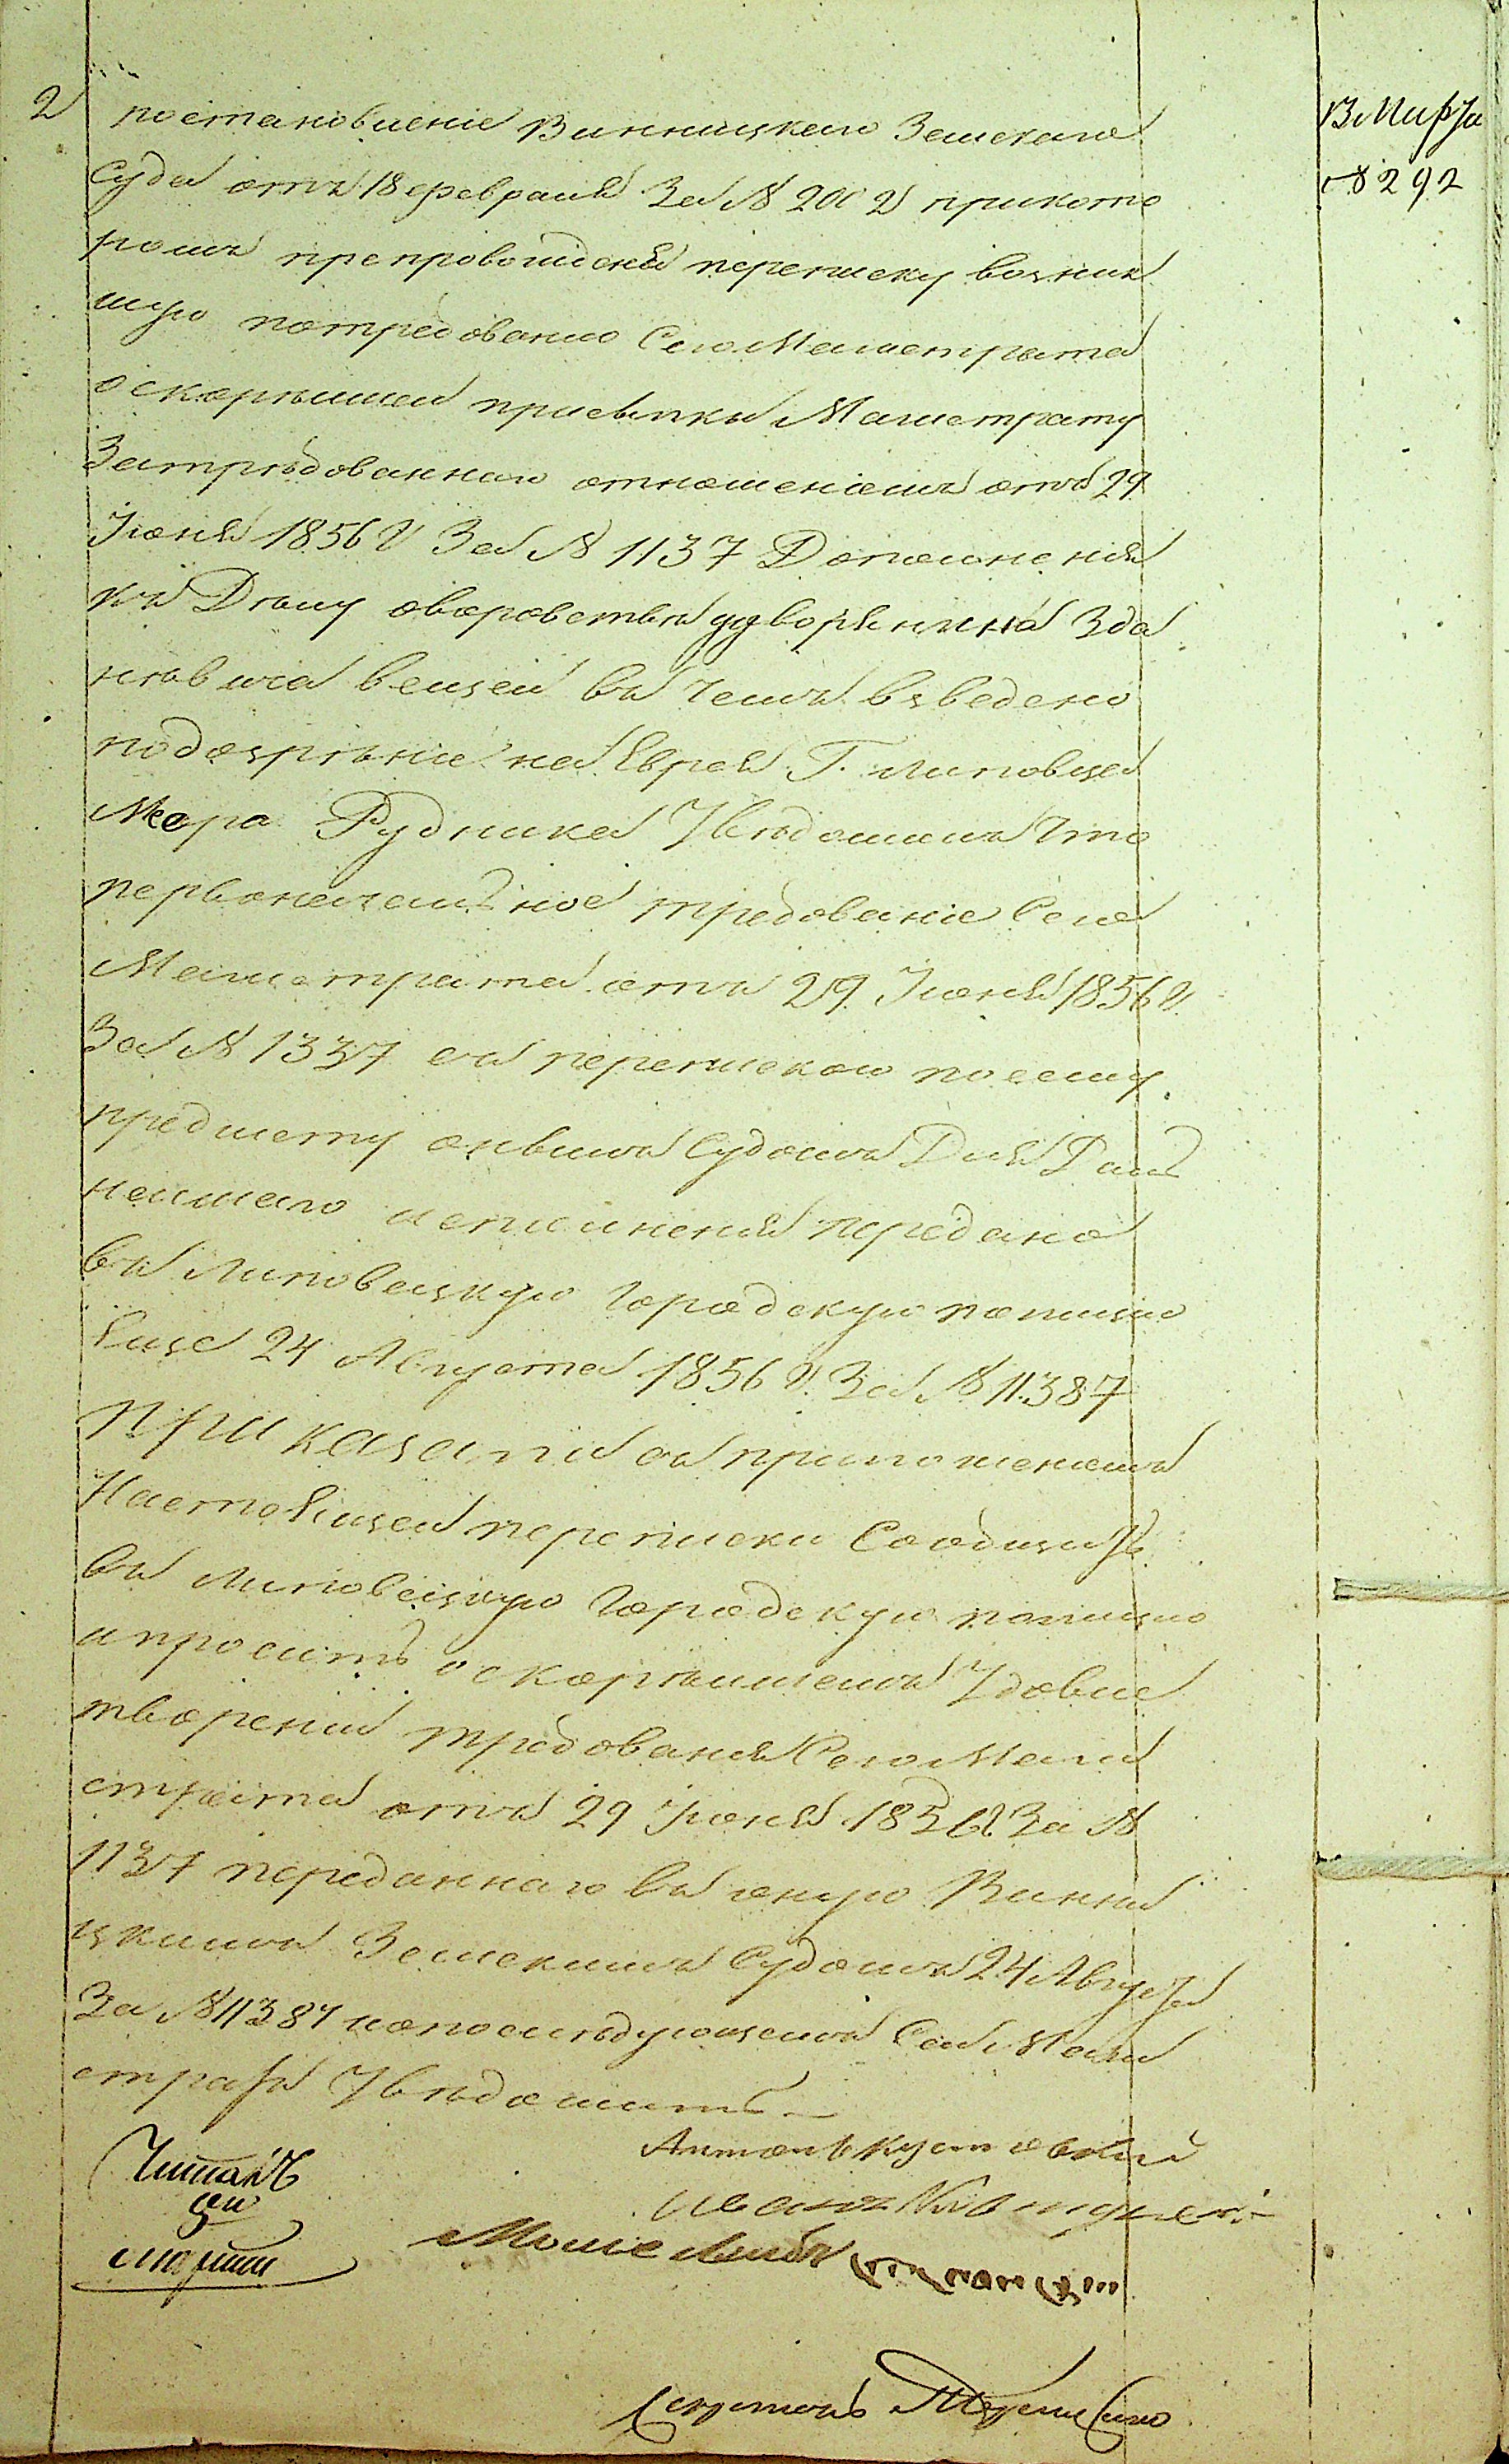 2 постановленіе Винницкаго Земскаго
Суда отъ 18 февраля За № 2002 прикото
ромъ препровождена переписку возник
шую потребованию Сего Магистрата
оскорѣйшей присылки Магистрату
Затребованнаго отношеніемъ отъ 29
Іюня 1856 г За № 1137 Дополнения
къ Дѣлу оворовствѣ удворянина Зда
новича вещей въ чемъ взведено
подозрѣние на Еврея Г. Липовца
Мера Рудника Увѣдомилъ что
первоначальное требование Сего
Магистрата отъ 29 Іюня 1856 г.
За № 1337 съ перепискою посему
предмету онымъ Судомъ Для Даль
нейшаго исполнения передано
въ Липовецкую Городскую полицию
Еще 24 Августа 1856 г. За № 11387
Приказали съ приложенемъ
Настоящей переписки Сообщить
въ Липовецкую Городскую полицию
ипросить оскорѣйшемъ Удовле
творении требования Сего Маги
страта отъ 29 Іюня 1856 г За №
1137 переданнаго въ оную Винни
цкимъ Земскимъ Судомъ 24 Августа
За № 11387 ипопослѣдующемъ Сей Маги
стратъ Увѣдомить
В Марта
№ 292
Читалъ
Мошко
Секретарь